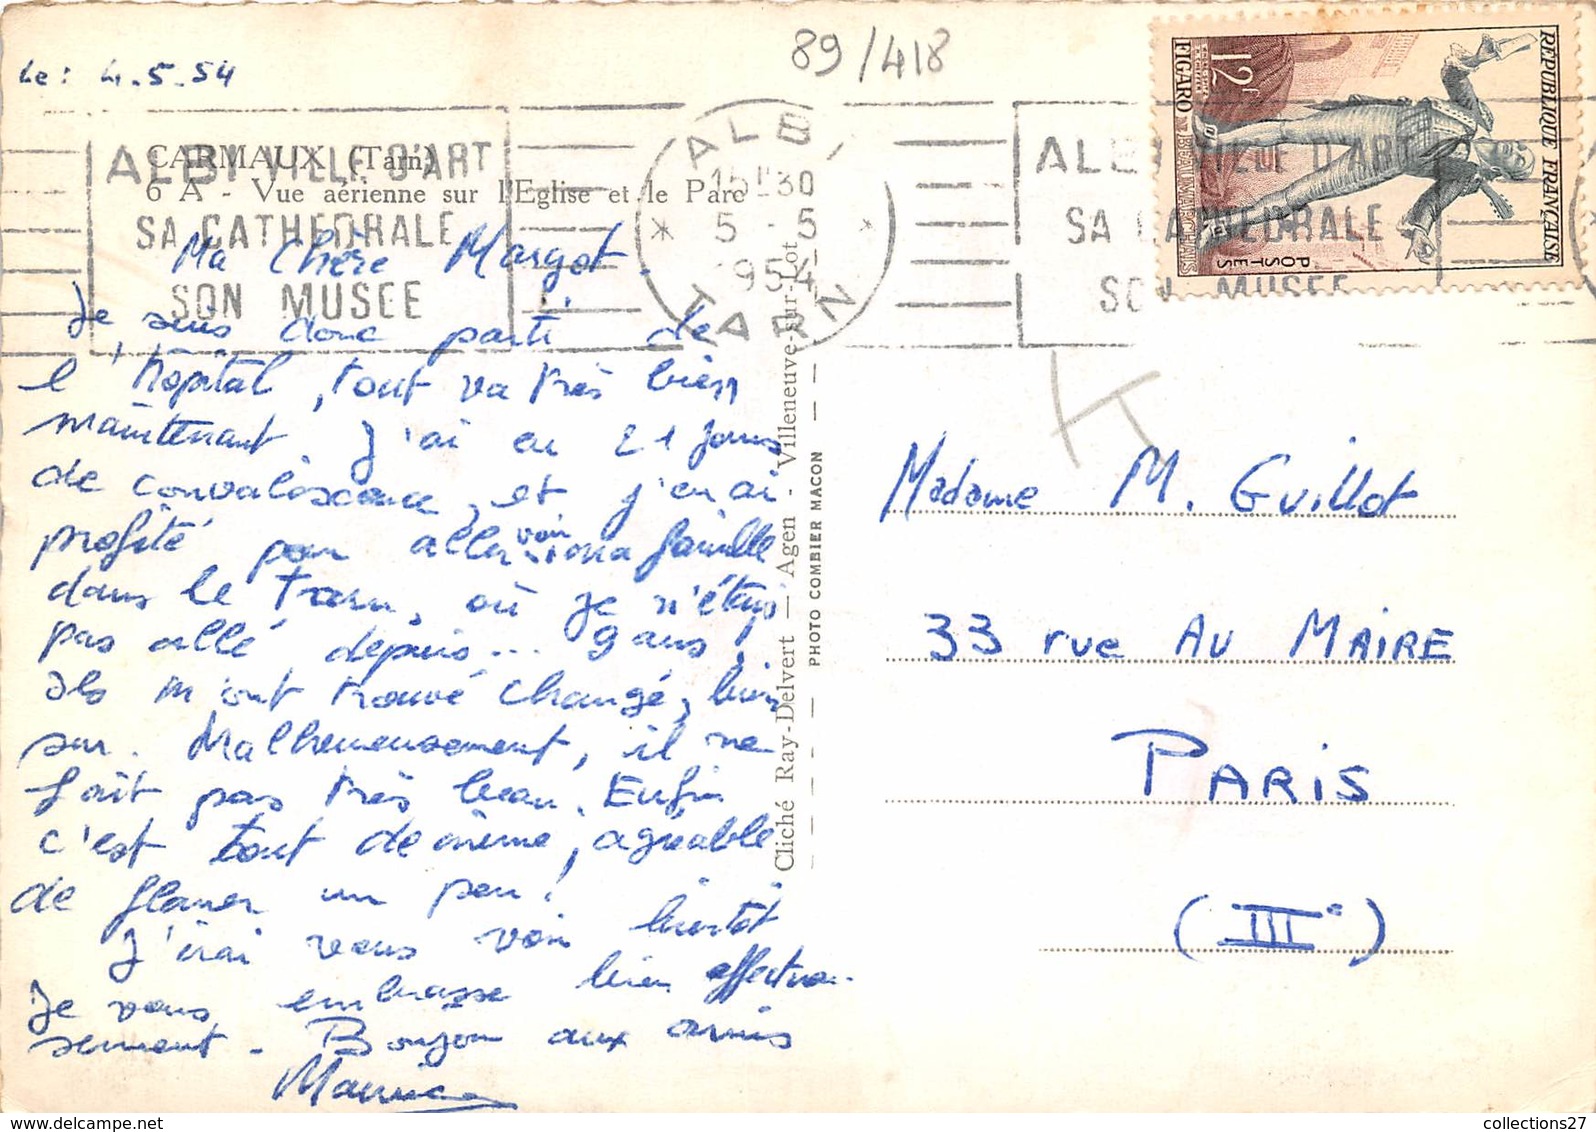 89/418
Le : 4.5.54
CARMAUX (Tarn)
6 A - Vue aérienne sur l'Eglise et le Parc
ALBI VILLE D'ART
SA CATHEDRALE
SON MUSEE
ALBI
15H30
5 - 5
1954
TARN
ALBI VILLE D'ART
SA CATHEDRALE
SON MUSEE
RÉPUBLIQUE FRANÇAISE
POSTES
12F
FIGARO
BEAUMARCHAIS
Ma Chère Margot.
Je suis donc parti de
l'hôpital, tout va très bien
maintenant J'ai eu 21 jours
de convalescence, et j'en ai
profité pour aller voir ma famille
dans le Tarn, où je n'étais
pas allé depuis... 9 ans,
ils m'ont trouvé changé, bien
sur. Malheureusement, il ne
fait pas très beau. Enfin
c'est tout de même, agréable
de flaner un peu!
J'irai vous voir bientôt
Je vous embrasse bien affectueu-
sement. Bonjour aux amis
Maurice
Cliché Ray-Delvert — Agen - Villeneuve-sur-Lot
PHOTO COMBIER MACON
Madame M. Guillot
33 rue AU MAIRE
PARIS
(IIIe)
collections27